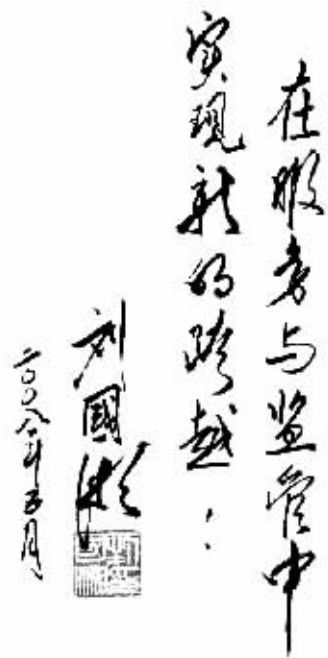 在服务与监管中
实现新的跨越！
刘国彬
二〇〇八年五月